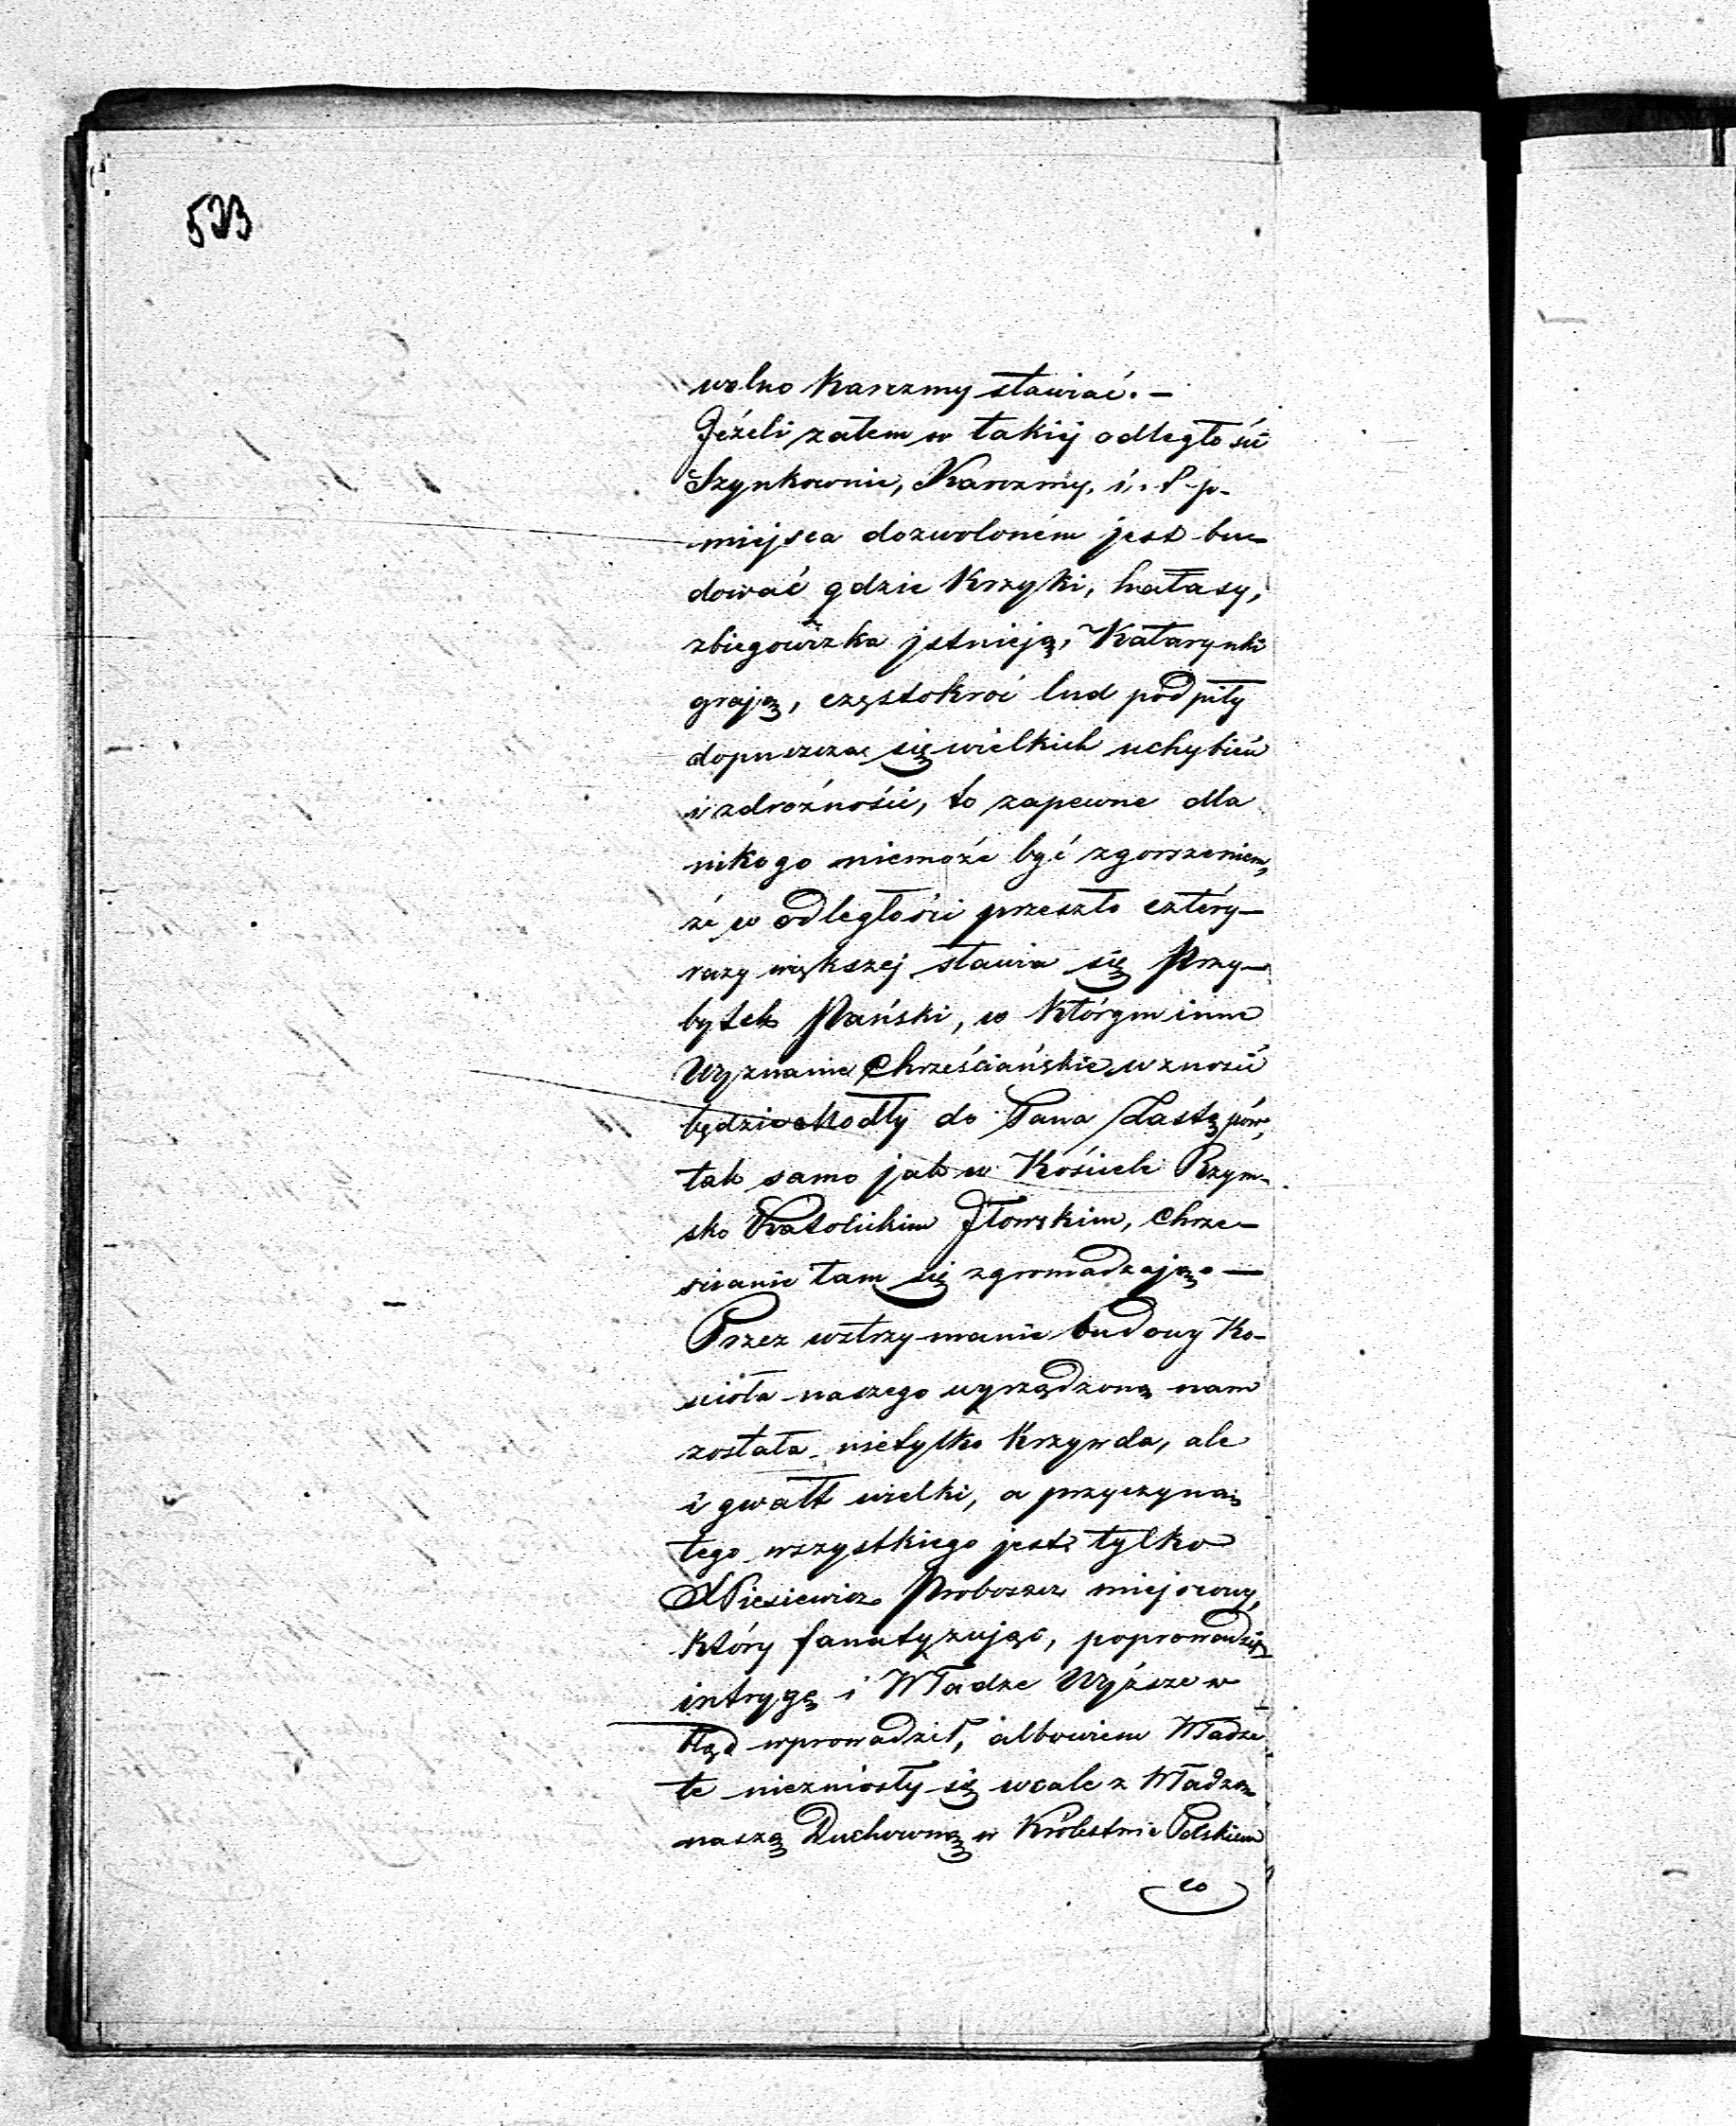 523
wolno Karczmy stawiać. —
Jeżeli zatem w takiej odległości
Szynkownie, Karczmy, i. t. p.
miejsca dozwoloném jest bu-
dować gdzie Krzyki, hałasy,
zbiegowizka jstnieją, Katarynki
grają, częstokroć lud podpiły
dopuszcza się wielkich uchybień
i zdrożności, to zapewne dla
nikogo niemoże być zgorszeniem,
że w odległości przeszło cztéry-
razy większej stawia się Przy-
bytek Pański, w którym inne
Wyznanie Chrześciańskie wznosić
będzie Modły do Pana Zastępów,
tak samo jak w Kościele Rzym-
sko Katolickim Jłowskim, Chrze-
ścianie tam się zgromadzają. —
Przez wztrzymanie budowy Ko-
ścioła naszego wyrządzoną nam
została nietylko Krzywda, ale
i gwałt wielki, a przyczyną
tego wszystkiego jest tylko
X Piesiewicz Proboszcz miejscowy,
który fanatyzując, poprowadził
intrygę i Władze Wyższe w
błąd wprowadził, albowiem Władze
te niezniosły się wcale z Władzą
naszą Duchowną w Królestwie Polskiem
co